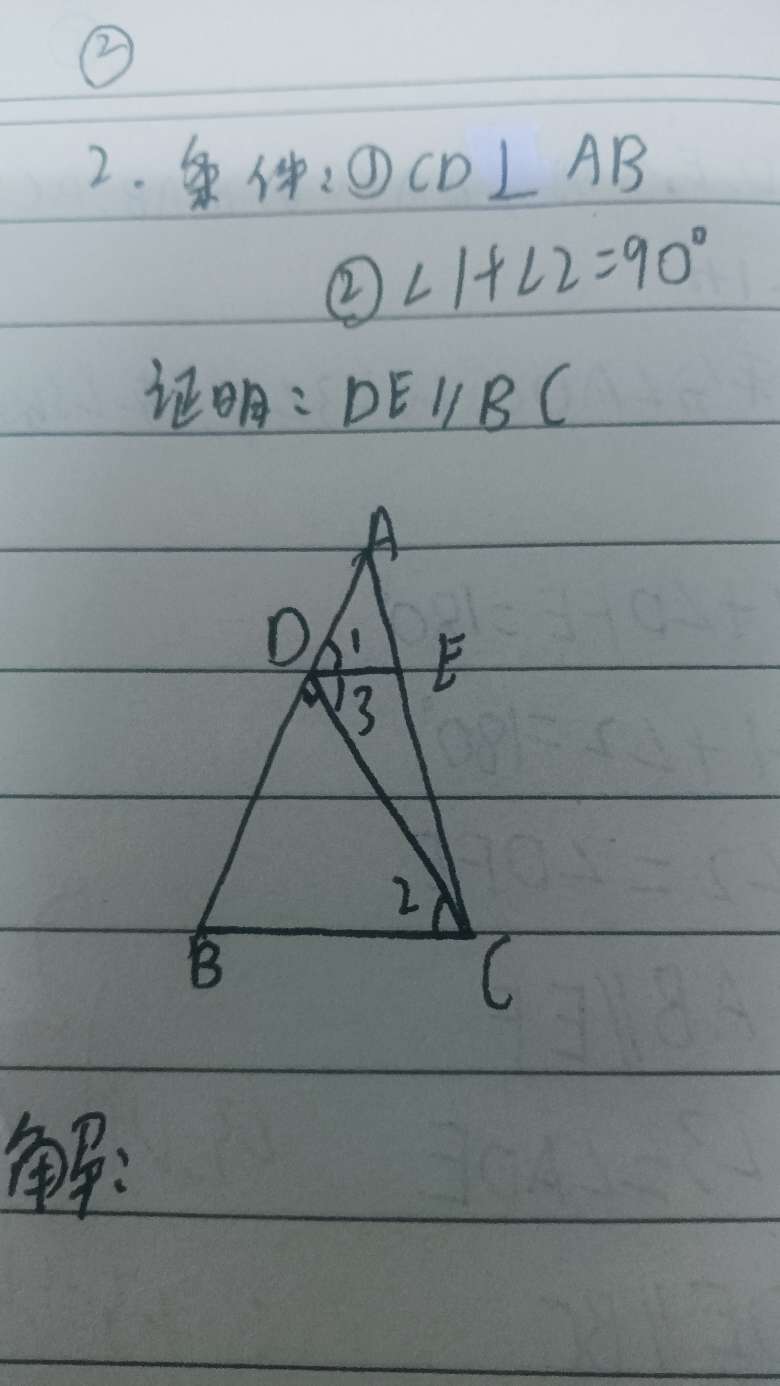 ②
2. 条件:①CD⊥AB
②∠1+∠2=90°
证明:DE//BC
A
D 1 E
3
2
B C
解: